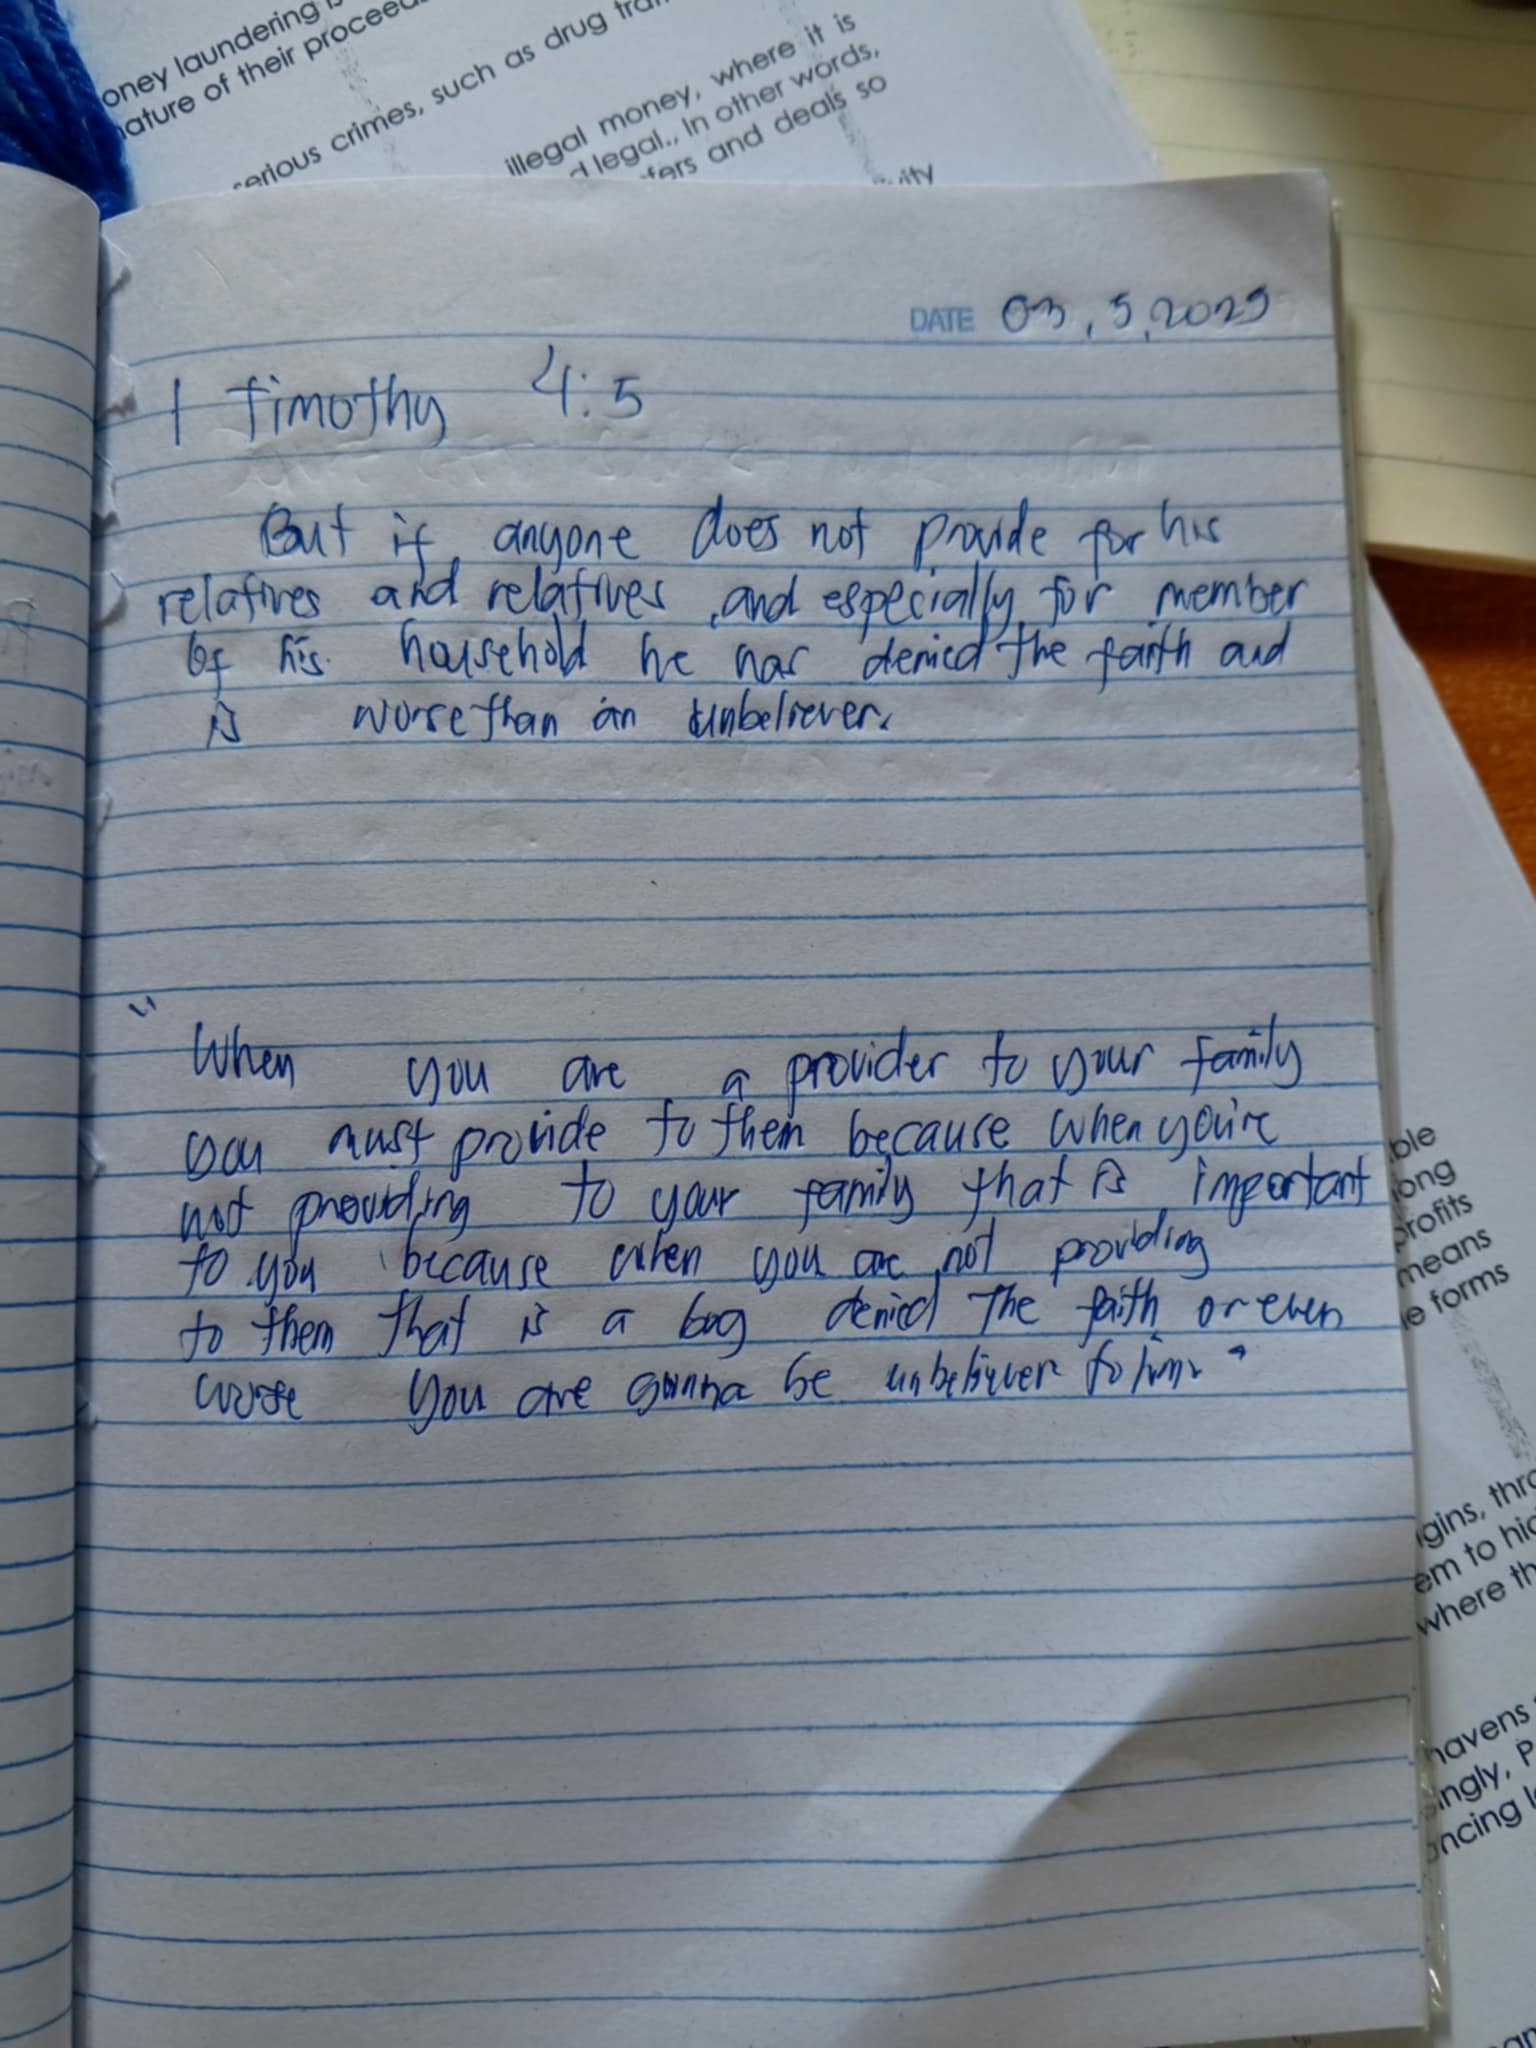 oney laundering
nature of their proceed
serious crimes, such as drug
illegal money, where it is
d legal., In other words,
fers and deals so
vity
DATE 03, 5, 2025
1 Timothy 4:5
But if anyone does not provide for his
relatives and relatives, and especially for member
of his household he has denied the faith and
is worse than an unbeliever.
"
When you are a provider to your family
you must provide to them because when you're
not providing to your family that is important
to you because when you are not providing
to them that is a bog denied the faith or even
worse you are gonna be unbeliever to him"
ble
long
profits
means
le forms
igins, thro
em to hid
where th
havens
singly, P
ncing